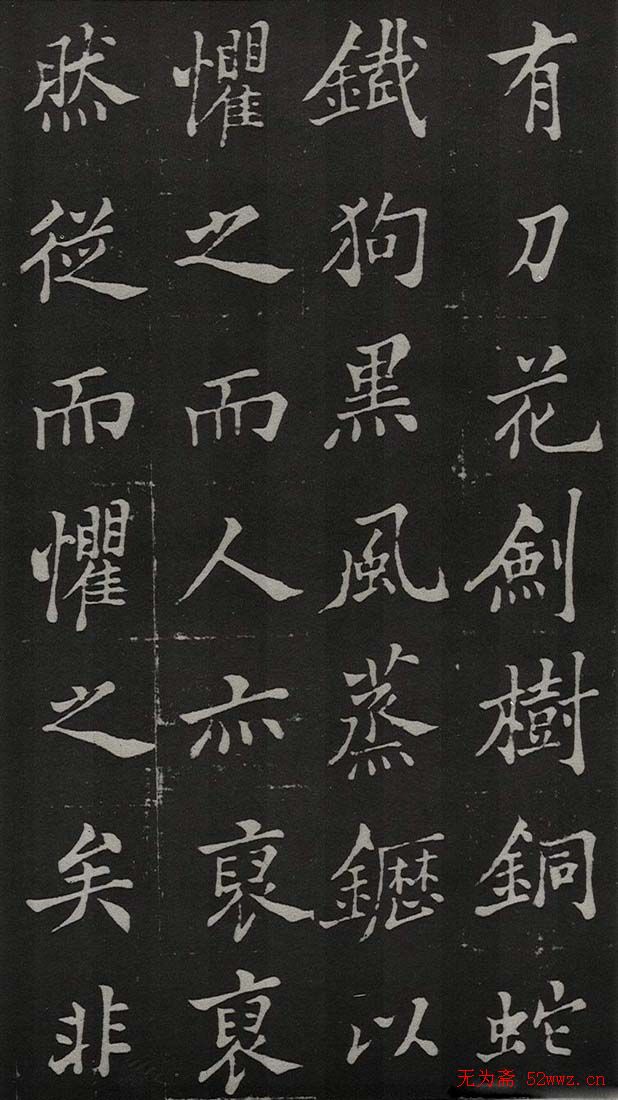 有刀花劍樹銅蛇
鐵狗黑風蒸以
懼之而人亦袞袞
然從而懼之矣非
无为斋 52wwz.cn